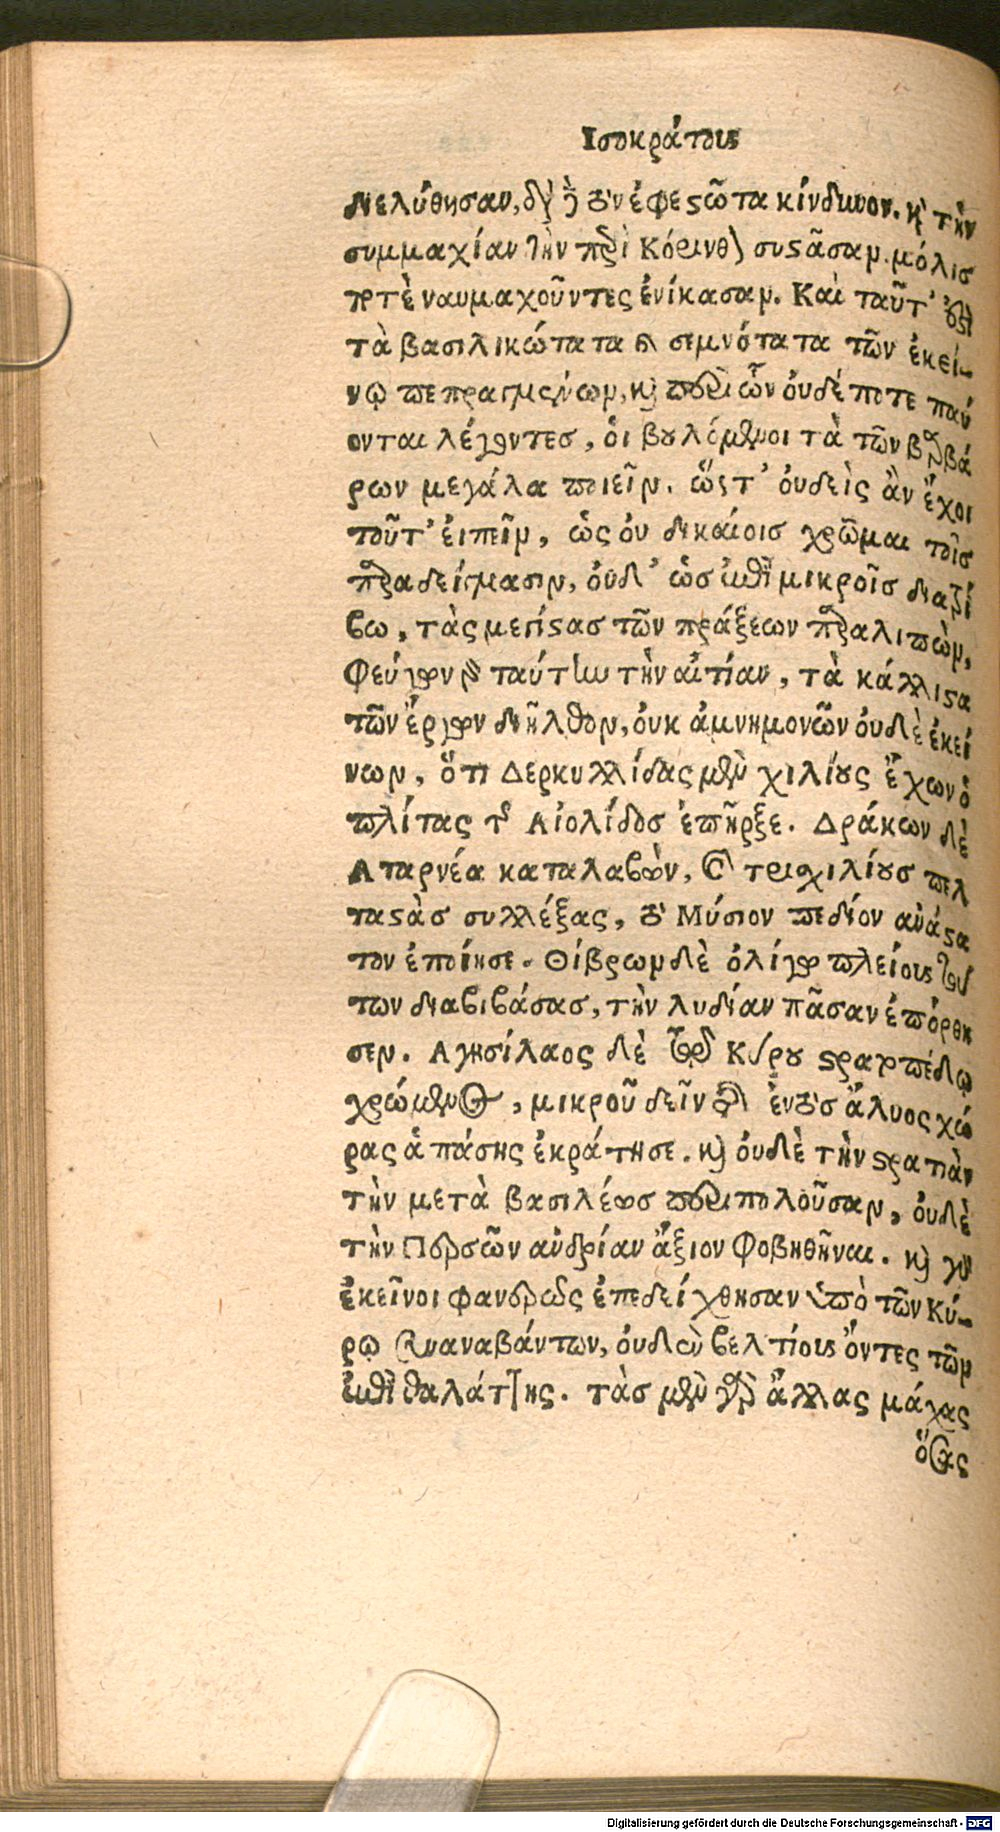 Ισοκράτους
νελύθησαν, διὰ τὸν ἐφεστῶτα κίνδυνον. καὶ τὴν
συμμαχίαν τὴν περὶ Κόρινθον συστᾶσαν. μόλις
ποτὲ ναυμαχοῦντες ἐνίκασαν. Καὶ ταῦτ' ἐστὶ
τὰ βασιλικώτατα καὶ σεμνότατα τῶν ἐκεί-
νῳ πεπραγμένων, καὶ περὶ ὧν ὀυδέποτε παύ
ονται λέγοντες, ὁι βουλόμενοι τὰ τῶν βαρβά
ρων μεγάλα ποιεῖν. ὥστ' ὀυδεὶς ἂν ἔχοι
τοῦτ' ἐιπεῖν, ὡς ὀυ δικαίοις χρῶμαι τοῖς
παραδείγμασιν, ὀυδ' ὡς ἐπὶ μικροῖς διατρί
βω, τὰς μεγίστας τῶν πράξεων παραλιπὼν,
Φεύγων γὰρ ταύτην τὴν αἰτίαν, τὰ κάλλιστα
τῶν ἔργων διῆλθον, ὀυκ ἀμνημονῶν ὀυδὲ ἐκεί
νων, ὅτι Δερκυλλίδας μὲν χιλίους ἔχων ὁ
πλίτας τῆς Αἰολίδος ἐπῆρξε. Δράκων δὲ
Αταρνέα καταλαβὼν, καὶ τριχιλίους πελ
ταστὰς συλλέξας, τὸ Μύσιον πεδίον ἀνάστα
τον ἐποίησε. Θίβρων δὲ ὀλίγῳ πλείους τού
των διαβιβάσας, τὴν λυδίαν πᾶσαν ἐπόρθη
σεν. Αγησίλαος δὲ τῷ Κύρου στρατοπέδῳ
χρώμενος, μικροῦ δεῖν τῆς ἐντὸς ἄλυος χώ
ρας ἁπάσης ἐκράτησε. καὶ ὀυδὲ τὴν στρατιὰν
τὴν μετὰ βασιλέως περιπολοῦσαν, ὀυδὲ
τὴν Περσῶν ἀνδρίαν ἄξιον Φοβηθῆναι. καὶ γὰρ
ἐκεῖνοι φανερῶς ἐπεδείχθησαν ὑπὸ τῶν Κύ-
ρῳ συναναβάντων, ὀυδὲν βελτίους ὄντες τῶν
ἐπὶ θαλάττης. τὰς μὲν γὰρ ἄλλας μάχας
ὅσας
Digitalisierung gefördert durch die Deutsche Forschungsgemeinschaft - DFG